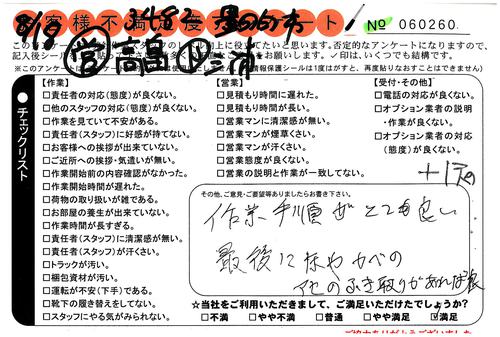 お客様不満足度アンケート
№ 060260
8/8
このアン
のレベル向上に役立てたいと思います。否定的なアンケートになりますので、
お願いします。✓印は、いくつでも結構です。
報保護シールは1度はがすと、再度貼りなおすことはできません)
●チェックリスト
【作業】
□責任者の対応(態度)が良くない。
□他のスタッフの対応(態度)が良くない。
□作業を見ていて不安がある。
□責任者(スタッフ)に好感が持てない。
□お客様への挨拶が出来ていない。
□ご近所への挨拶・気遣いが無い。
□作業開始前の内容確認がなかった。
□作業開始時間が遅れた。
□荷物の取り扱いが雑である。
□お部屋の養生が出来ていない。
□作業時間が長すぎる。
□責任者(スタッフ)に清潔感が無い。
□責任者(スタッフ)が汗くさい。
□トラックが汚い。
□梱包資材が汚い。
□運転が不安(下手)である。
□靴下の履き替えをしてない。
□スタッフにやる気がみられない。
【営業】
□見積もり時間に遅れた。
□見積もり時間が長い。
□営業マンに清潔感が無い。
□営業マンが煙草くさい。
□営業マンが汗くさい。
□営業態度が良くない。
□営業の説明と作業が一致してない。
【受付・その他】
□電話の対応が良くない。
□オプション業者の説明
・作業が良くない。
□オプション業者の対応
(態度)が良くない。
その他、ご意見・ご要望等ありましたらお書き下さい。
作業手順がとても良い
最後に床やカベの
アセのふき取りがあれば
☆当社をご利用いただきまして、ご満足いただけたでしょうか?
□不満 □やや不満 □普通 □やや満足 ☑満足
ご協力ありがとうございました